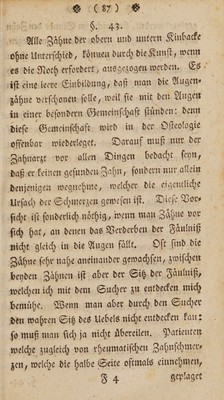 ( 87 )
§. 43.
Alle Zähne der obern und untern Kinbacke
ohne Unterschied, können durch die Kunst, wenn
es die Noth erfordert, ausgezogen werden. Es
ist eine leere Einbildung, daß man die Augen-
zähne verschonen solle, weil sie mit den Augen
in einer besondern Gemeinschaft stünden: denn
diese Gemeinschaft wird in der Osteologie
offenbar wiederleget. Darauf muß nur der
Zahnarzt vor allen Dingen bedacht seyn,
daß er keinen gesunden Zahn, sondern nur allein
denjenigen wegnehme, welcher die eigentliche
Ursach der Schmerzen gewesen ist. Diese Vor-
sicht ist sonderlich nöthig, wenn man Zähne vor
sich hat, an denen das Verderben der Fäulniß
nicht gleich in die Augen fällt. Oft sind die
Zähne sehr nahe aneinander gewachsen, zwischen
beyden Zähnen ist aber der Sitz der Fäulniß,
welchen ich mit dem Sucher zu entdecken mich
bemühe. Wenn man aber durch den Sucher
den wahren Sitz des Uebels nicht entdecken kan:
so muß man sich ja nicht übereilen. Patienten
welche zugleich von rheumatischen Zahnschmer-
zen, welche die halbe Seite oftmals einnehmen,
F 4 geplaget